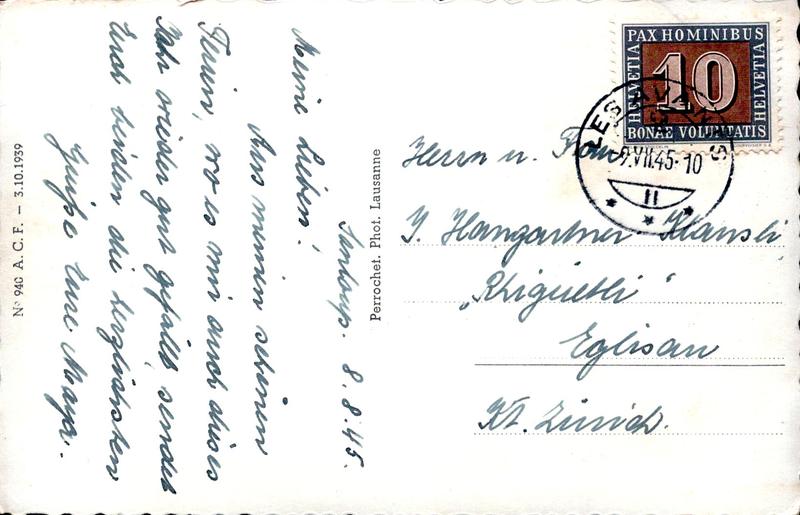 Santoup. 8.8.45.
Meine Lieben!
Aus meinen schönen
Ferien, wo es mir auch dieses
Jahr wieder gut gefällt, sendet
Euch beiden die herzlichsten
Grüsse Eure Mayr.
Nº 940 A. C. F. — 3.10.1939
Perrochet. Phot. Lausanne
PAX HOMINIBUS
HELVETIA
10
HELVETIA
BONAE VOLUNTATIS
9.VII.45-10
II
Herrn u. Frau
J. Hangartner-Hansli
„Rhigüetli"
Eglisau
Kt. Zürich.